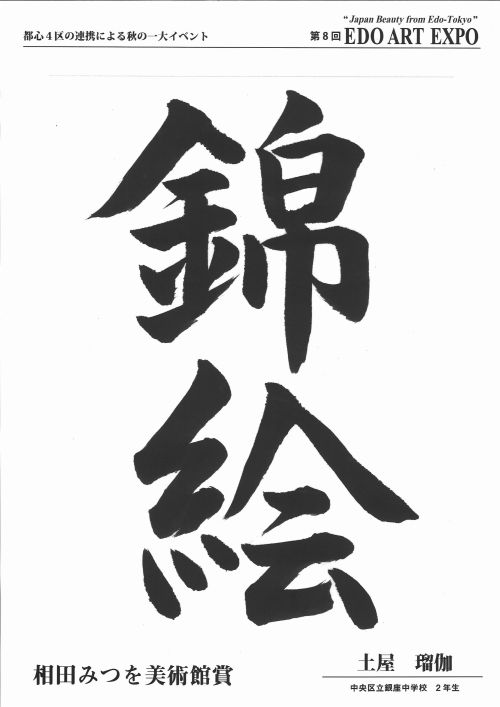 都心4区の連携による秋の一大イベント
"Japan Beauty from Edo-Tokyo"
第8回 EDO ART EXPO
錦
絵
相田みつを美術館賞
土屋 瑠伽
中央区立銀座中学校 2年生